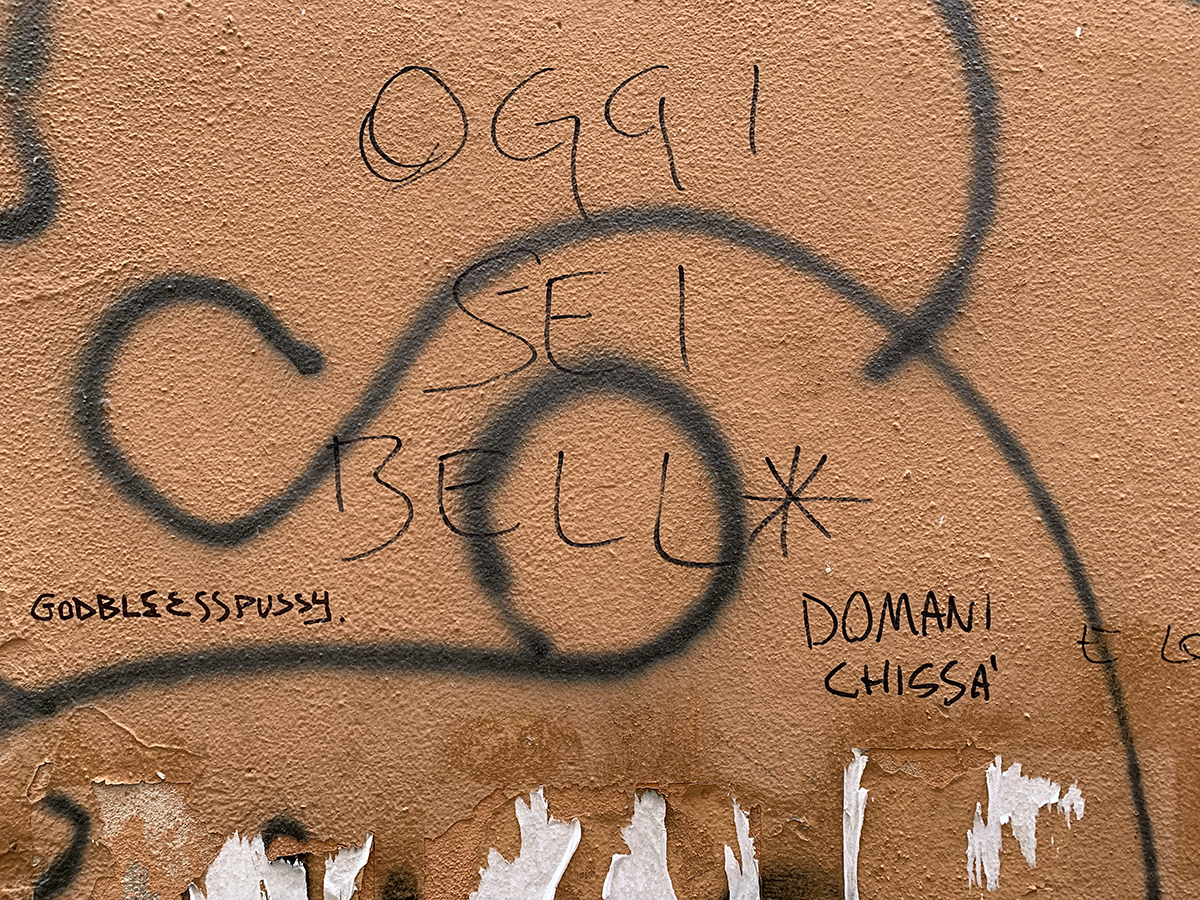 OGGI
SEI
BELL*
GODBLEESSPUSSY.
DOMANI
CHISSA'